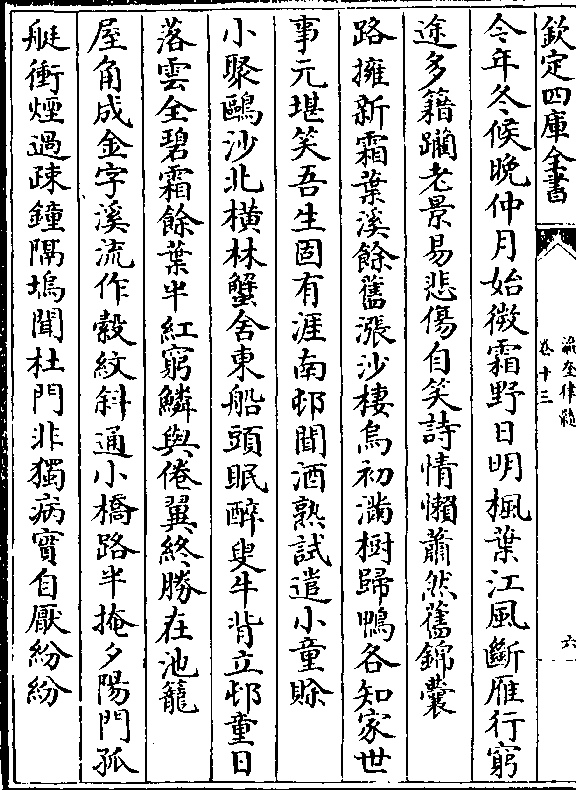 欽定四庫全書
瀛奎律髓
卷十三
六
今年冬候晚仲月始微霜野日明楓葉江風斷雁行窮
途多籍躪老景易悲傷自笑詩情懶蕭然舊錦囊
路擁新霜葉溪餘舊漲沙棲烏初滿樹歸鴨各知家世
事元堪笑吾生固有涯南邨聞酒熟試遣小童賖
小聚鷗沙北橫林蟹舍東船頭眠醉叟牛背立邨童日
落雲全碧霜餘葉半紅窮鱗與倦翼終勝在池籠
屋角成金字溪流作縠紋斜通小橋路半掩夕陽門孤
艇衝煙過疎鐘隔塢聞杜門非獨病實自厭紛紛